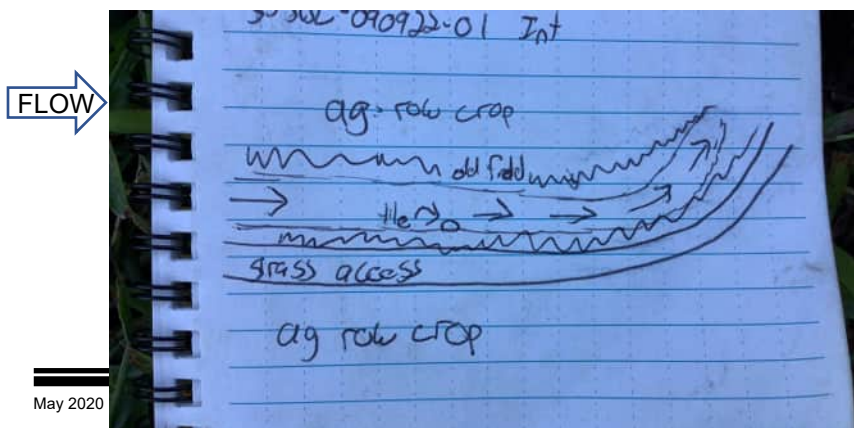 -090922-01 Int
FLOW
ag row crop
old field
tile
grass access
ag row crop
May 2020